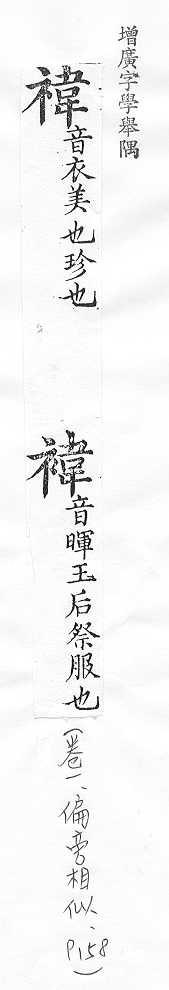 增廣字學舉隅
禕音衣美也珍也
褘音暉王后祭服也
(卷一、偏旁相似、P158)